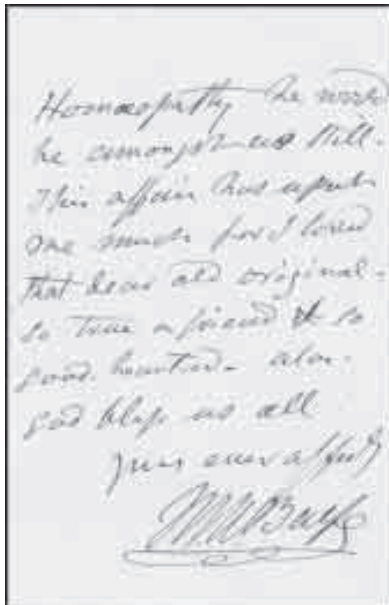 Homœopathy he would
be amongst us still.
This affair has upset
me much for I loved
that dear old original -
so true a friend & so
good hearted - alas.
god bless us all
yours ever affly
MWBalfe